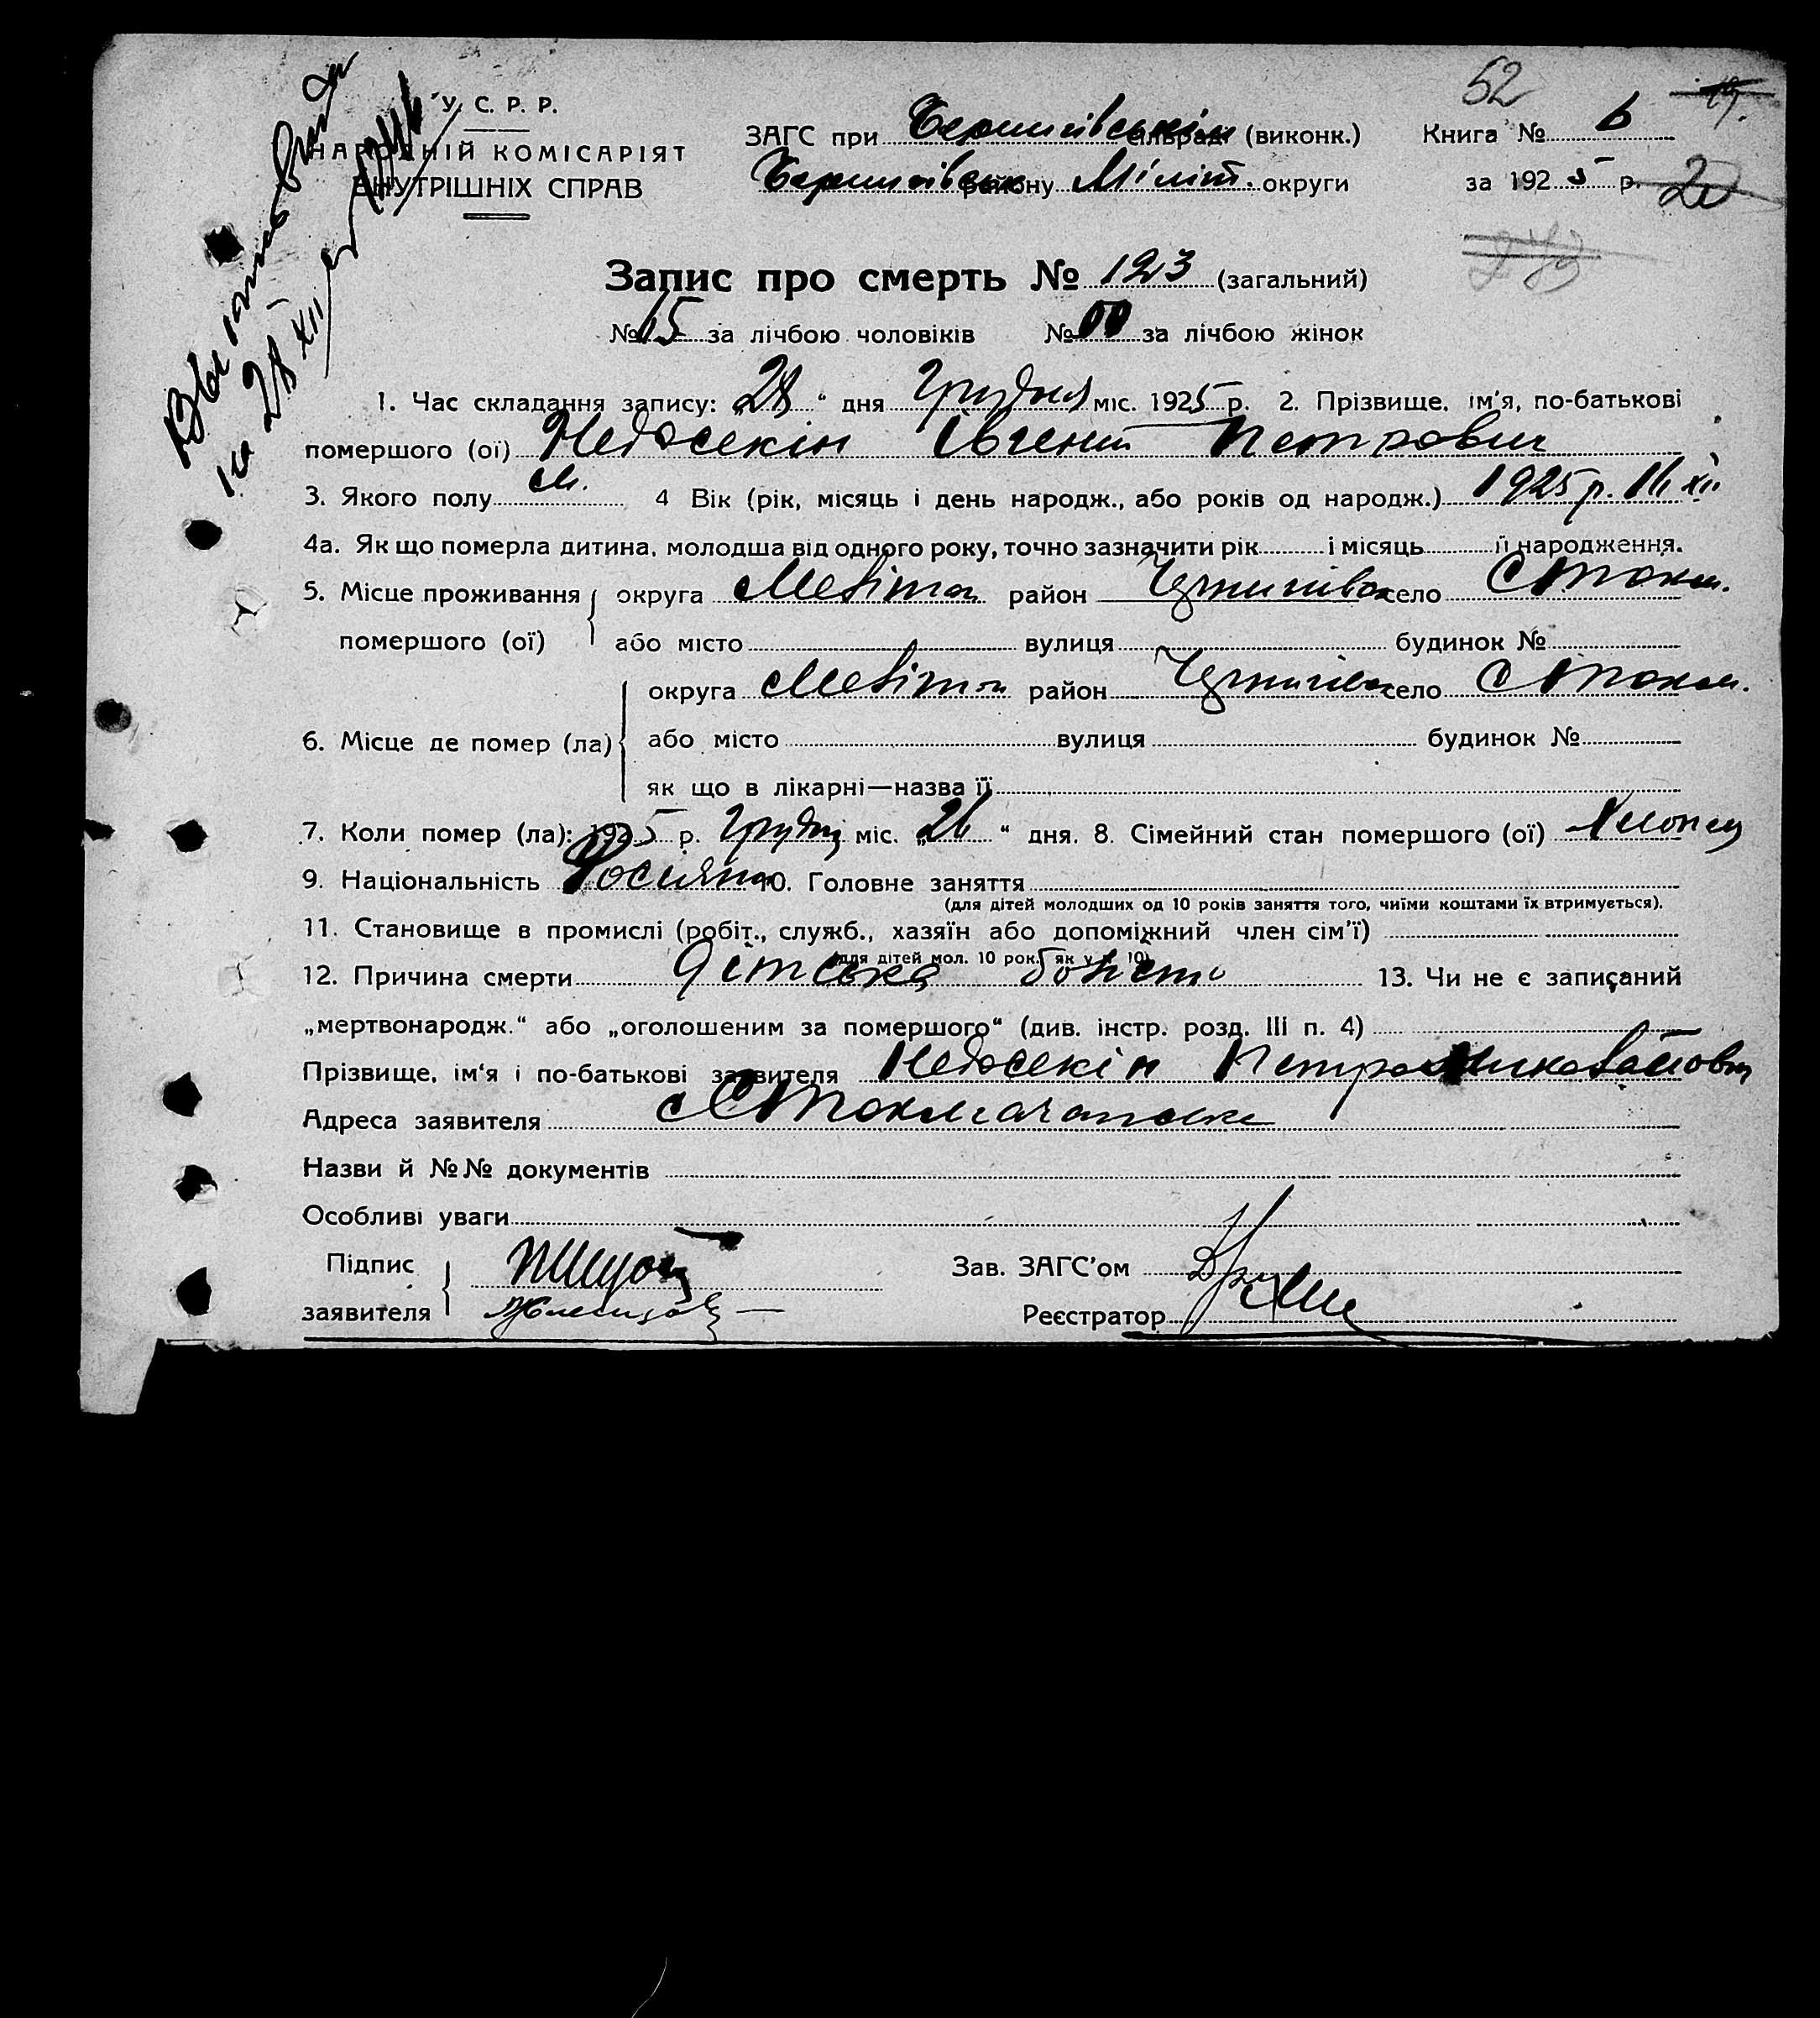 52
У. С. Р. Р.
НАРОДНІЙ КОМІСАРІЯТ
ВНУТРІШНІХ СПРАВ
ЗАГС при Чернигівськім сільраді (виконк.) Книга № 6
Чернигівськ району Меліт. округи за 1925 р. 20
Запис про смерть № 123 (загальний)
№ 65 за лічбою чоловіків № за лічбою жінок
28 XII
1. Час складання запису: „28“ дня Грудня міс. 1925 р. 2. Прізвище, ім'я, по-батькові
помершого (ої) Недосекін Євгений Петрович
3. Якого полу м. 4 Вік (рік, місяць і день народж., або років од народж.) 1925 р. XII
4а. Як що померла дитина, молодша від одного року, точно зазначити рік і місяць її народження.
5. Місце проживання округа Меліт район Чернигівск село С Токм.
помершого (ої) або місто вулиця будинок №
округа Меліт район Чернигівск село С Токм.
6. Місце де помер (ла) або місто вулиця будинок №
як що в лікарні—назва її
7. Коли помер (ла): 1925 р. Грудня міс. „26“ дня. 8. Сімейний стан помершого (ої) Хлопец
9. Національність Росіянин 10. Головне заняття
(для дітей молодших од 10 років заняття того, чиїми коштами їх втримується).
11. Становище в промислі (робіт., служб., хазяїн або допоміжний член сім'ї)
(для дітей мол. 10 рок. як у п. 10)
12. Причина смерти Дітська болість 13. Чи не є записаний
„мертвонародж.“ або „оголошеним за помершого“ (див. інстр. розд. III п. 4)
Прізвище, ім'я і по-батькові заявителя Недосекін Петро Миколайович
Адреса заявителя с Стокмачанське
Назви й №№ документів
Особливі уваги
Підпис Зав. ЗАГС'ом
заявителя Реєстратор